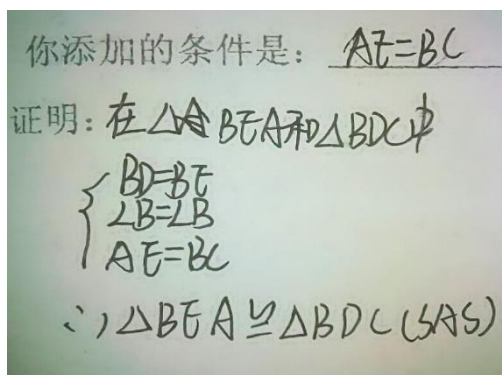 你添加的条件是：AE=BC
证明：在△BEA和△BDC中
BD=BE
∠B=∠B
AE=BC
∴△BEA≌△BDC(SAS)